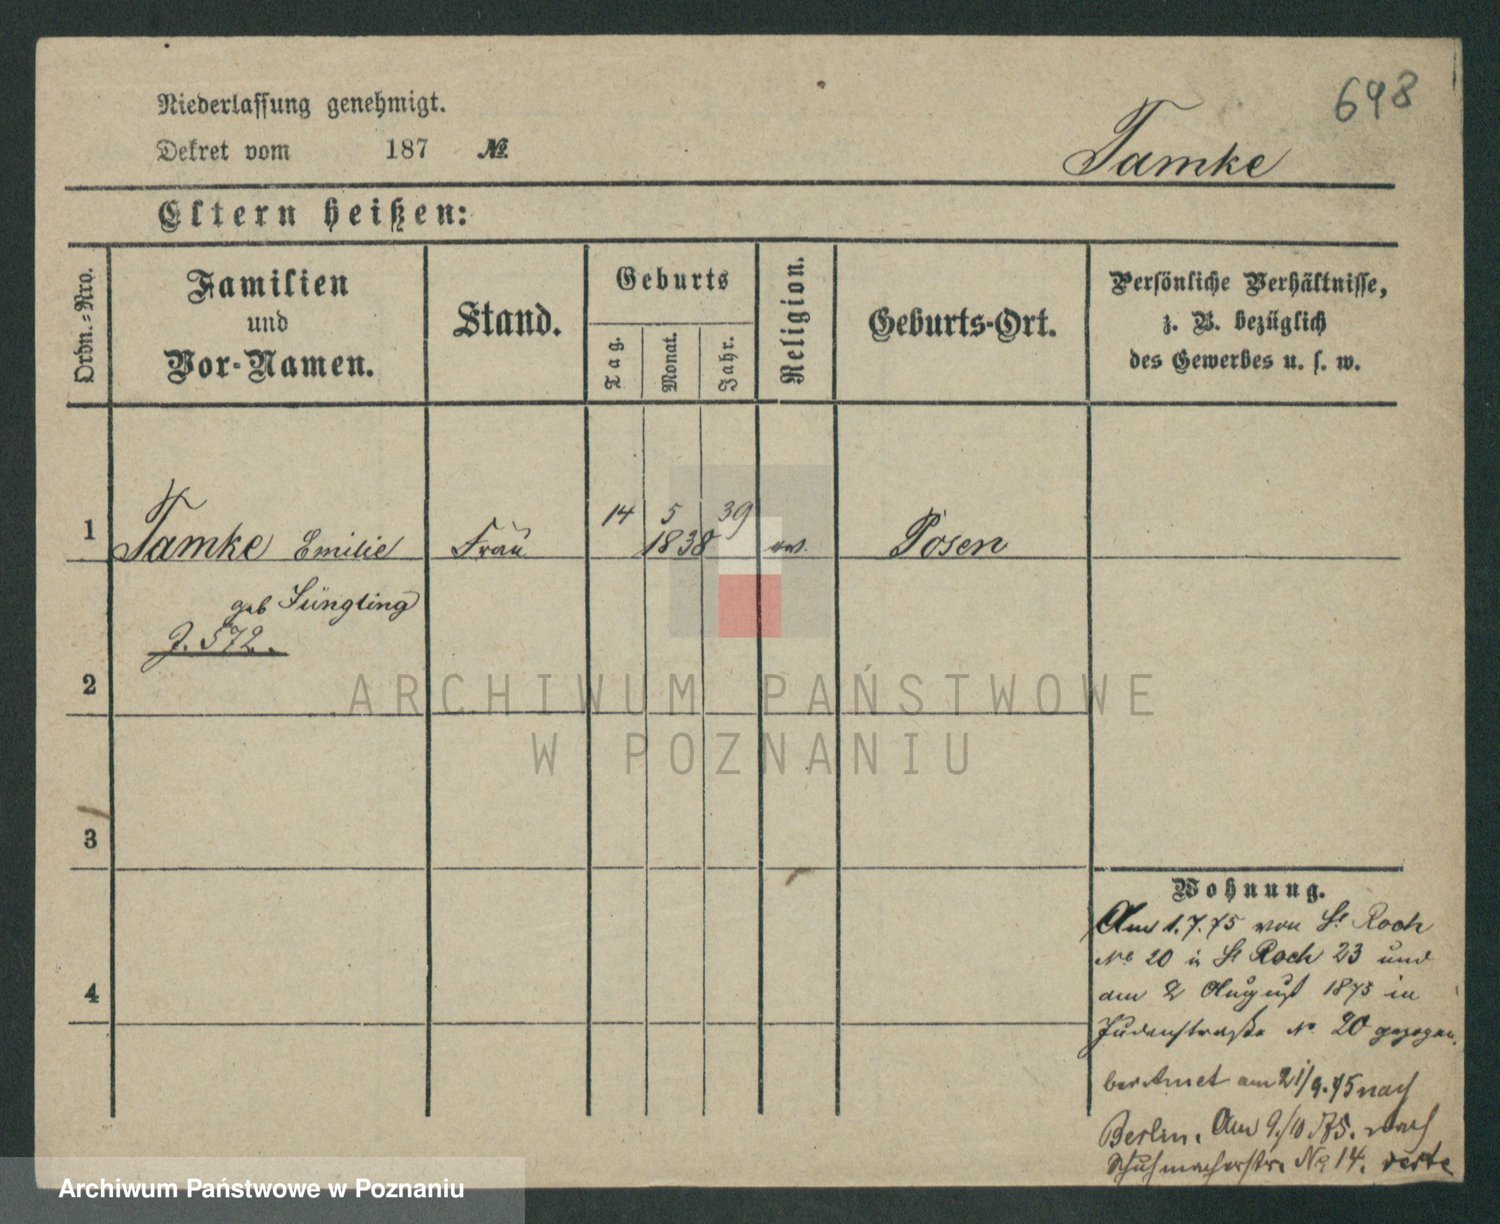 698
Niederlassung genehmigt.
Dekret vom 187 №
Tamke
Eltern heißen:
Ordn.-Nro.
Familien
und
Vor-Namen.
Stand.
Geburts
Tag.
Monat.
Jahr.
Religion.
Geburts-Ort.
Persönliche Verhältnisse,
z. B. bezüglich
des Gewerbes u. s. w.
1 Tamke Emilie Frau 14 5 39 1838 ev. Posen
geb Jüngling
J. 572.
2
3
4
Wohnung.
Am 1.7.75 von St Roch
No 20 St Roch 23 und
am 2 August 1875 in
Judenstraße No 20 gezogen.
am 21/9.75 nach
Berlin. Am 9./10 75. nach
Schuhmacherstr. No 14. verte
ARCHIWUM PAŃSTWOWE
W POZNANIU
Archiwum Państwowe w Poznaniu